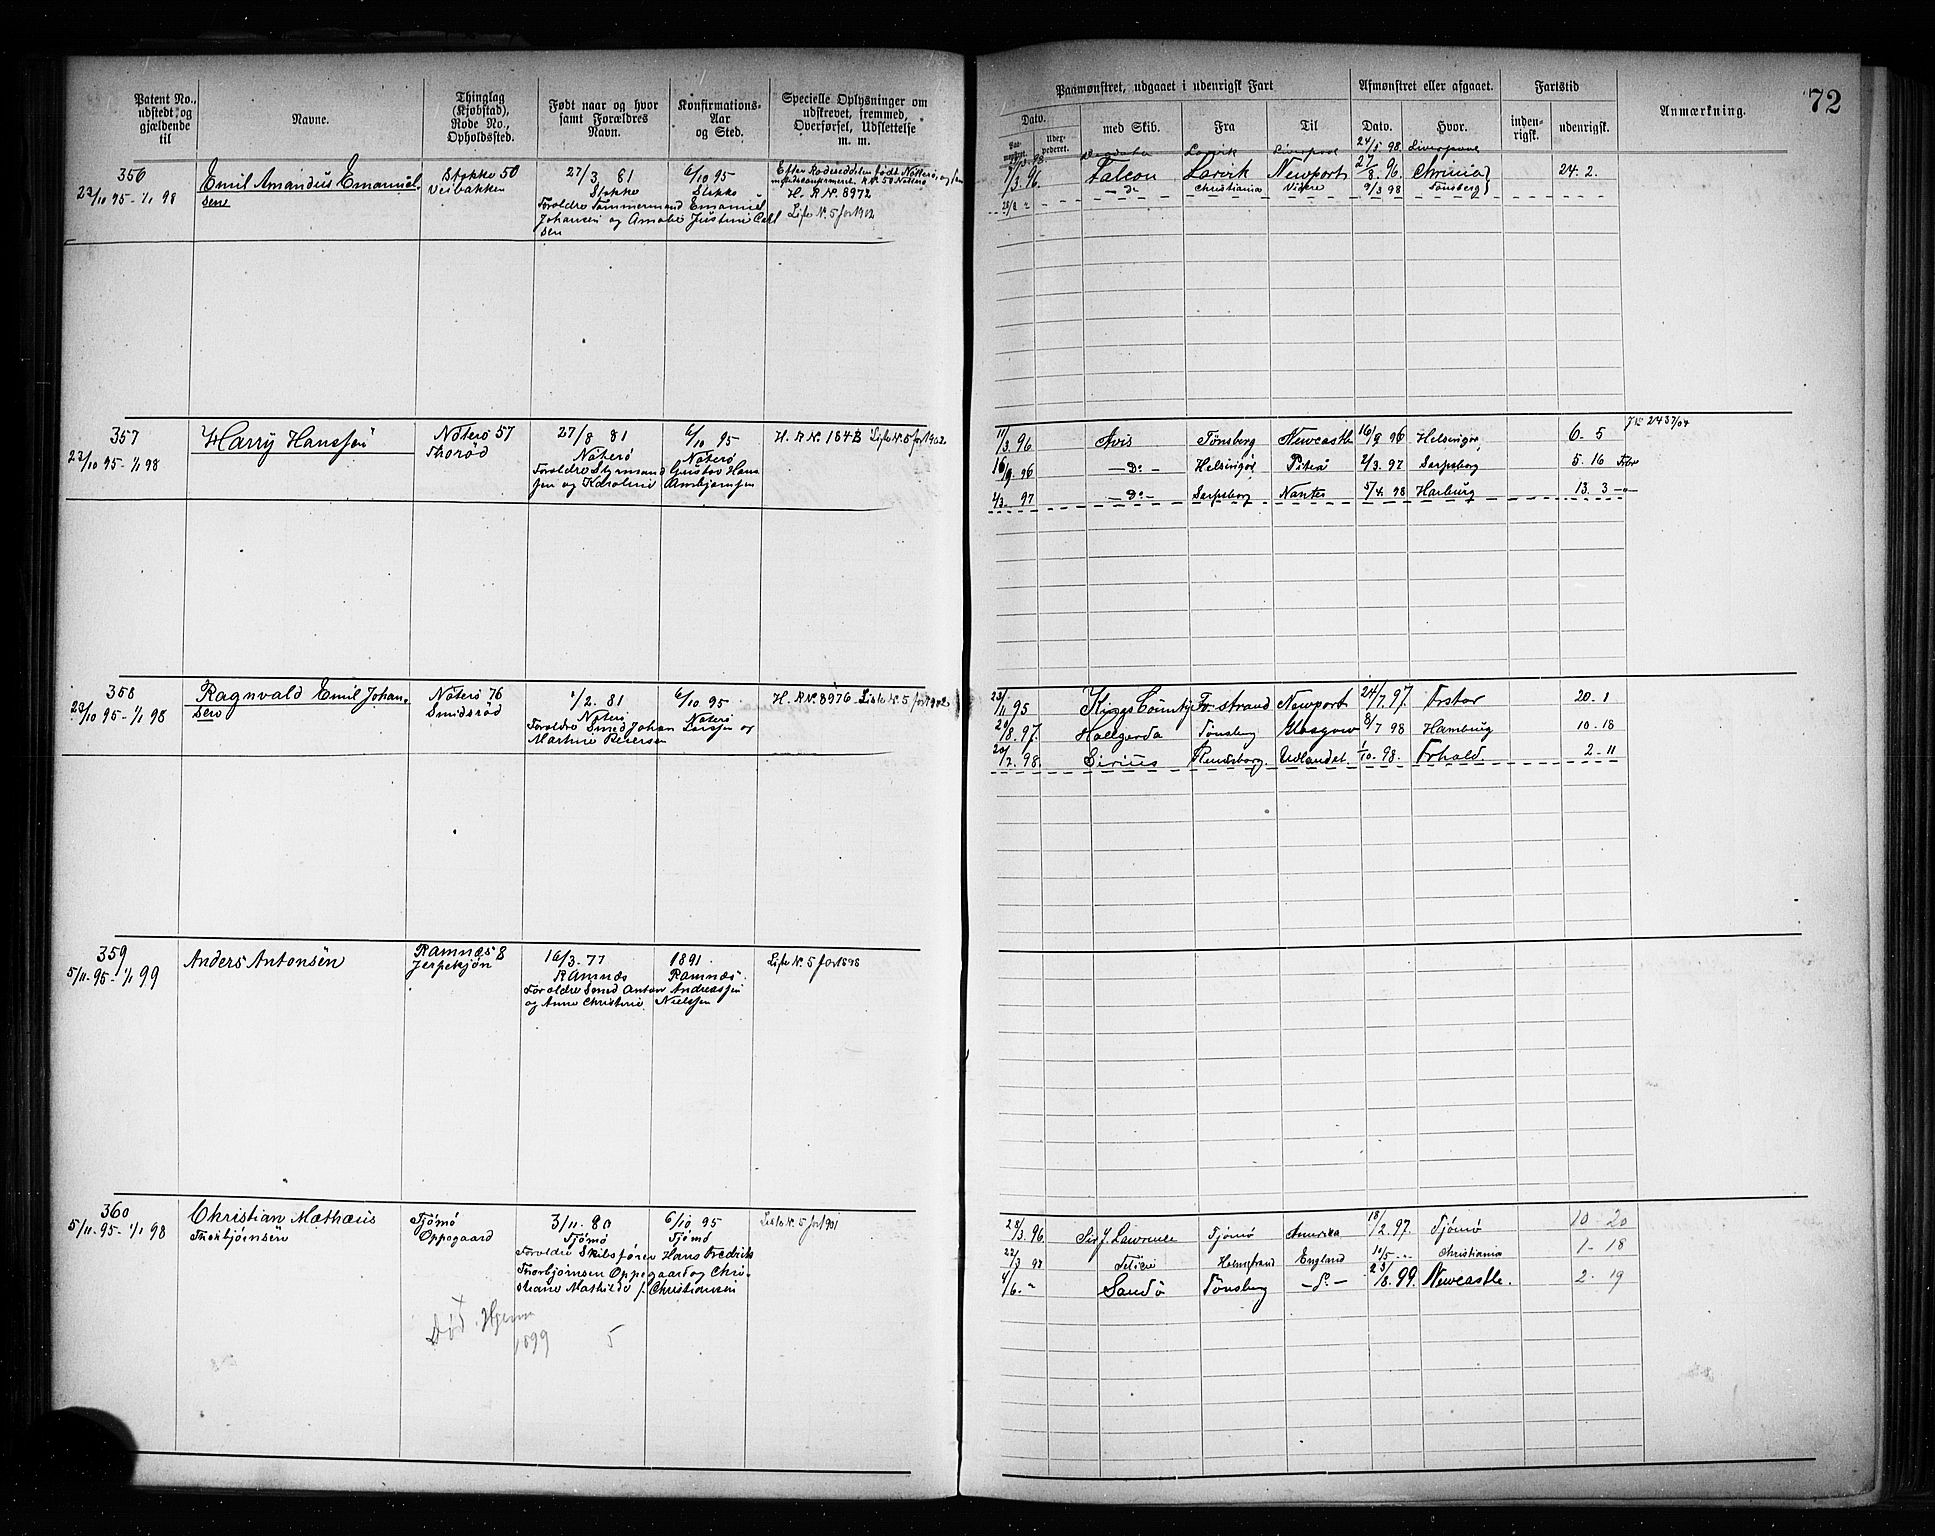 72
Patent No.,
udstedt, og
gjældende
til
Navne.
Thinglag
(Kjøbstad),
Rode No.,
Opholdssted.
Født naar og hvor
samt Forældres
Navn.
Konfirmations-
Aar
og Sted.
Specielle Oplysninger om
udskrevet, fremmed,
Overførsel, Udslettelse
m. m.
Paamønstret, udgaaet i udenrigsk Fart
Dato.
med Skib.
Fra
Til
Afmønstret eller afgaaet.
Dato.
Hvor.
Fartstid
inden-
rigsk.
udenrigsk.
Anmærkning.
356
23/10 95 - 1/1 98
Emil Amandus Emanuel
sen
Stokke 50
Veibakken
27/3 81
Stokke
Forældre Tømmermand Emanuel
Johansen og
sen
6/10 95
Stokke
H. R N. 8972
Liste N. 5 for 1902
24/5 98
Larvik
Liverpool
7/3 96 Falcon Larvik Newport 27/8 96
24. 2.
- Do - Christiania 9/3 98 Tønsberg
357
23/10 95 - 1/1 98
Harry Hanssen
Nøterø 57
Thorød
27/8 81
Nøterø
Forældre Styrmand Gustav Hans
sen og Karoline
6/10 95
Nøterø
H. R N. 184B Liste N. 5 for 1902
11/3 96 Avis Tønsberg Newcastle 16/9 96 Helsingør 6. 5
16/9 96 - Do - Helsingør Piteå 2/3. 97 Sarpsborg 5. 16
2/3. 97 - Do - Sarpsborg Nantes 5/4. 98 Harburg 13. 3
358
23/10 95 - 1/1 98
Ragnvald Emil Johan
sen
Nøterø 76
Smidsrød
1/2. 81
Nøterø
Forældre Smed Johan Larssen og
Martine Petersen
6/10 95
Nøterø
H. R N. 8976 Liste N. 5 for 1902
23/11 95 Kings County Fr. strand Newport 24/7. 97. 20. 1
29/8. 97. Hallgerda Tønsberg Glasgow 8/7 98 Hamburg 10 - 18
20/7. 98. Sirius Rendsborg. Udlandet. 1/10. 98. Forhold 2 - 11
359
5/11. 95 - 1/1 99
Anders Antonsen
Ramnæs 8
Jerpekjøn
16/3. 77
Ramnæs
Forældre Smed Anton Andreassen
og Anne Christine Nielssen
1891.
Ramnæs.
Liste N. 5 for 1898
360
5/11. 95 - 1/1 98
Christian Mathæus
Thorbjørnsen
Tjømø
Oppegaard
3/11. 80
Tjømø
Forældre Skibsfører Hans Fredrik
Thorbjørnsen Oppegaard og Chri-
stiane Mathilde f. Christiansen
6/10. 95
Tjømø
Liste N. 5 for 1901
Død. Hjemme
1899
5
28/3. 96 Sir J. Lawrence Tjømø Amerika 18/2. 97. Tjømø 10 - 20
Holmstrand England Christiania 1 - 18
Sandø Tønsberg - Do - 23/8. 99. Newcastle. 2. 19